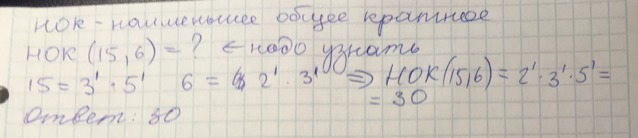 нок - наименьшее общее кратное
НОК (15, 6) = ? ← надо узнать
15 = 3¹ · 5¹ 6 = 2¹ · 3¹ ⇒ НОК(15,6) = 2¹ · 3¹ · 5¹ =
= 30
Ответ: 30